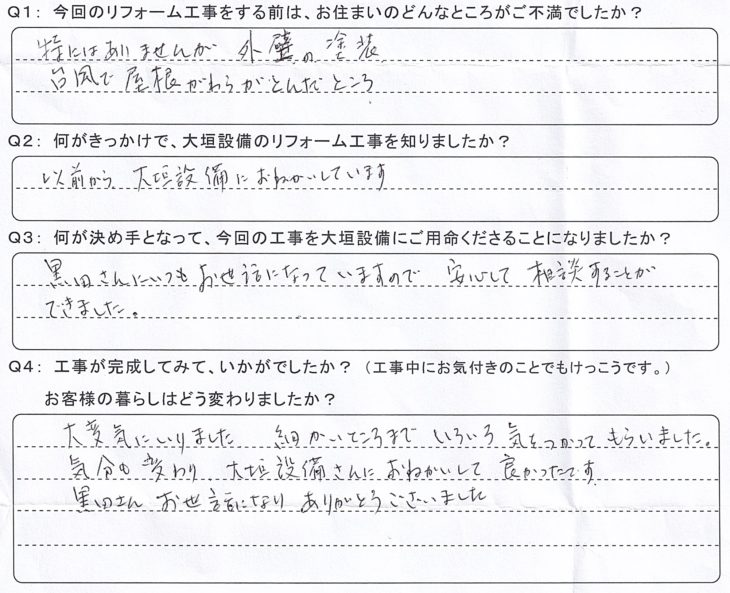 Q1： 今回のリフォーム工事をする前は、お住まいのどんなところがご不満でしたか？
特にはありませんが 外壁の塗装
台風で屋根がわらがとんだところ
Q2： 何がきっかけで、大垣設備のリフォーム工事を知りましたか？
以前から 大垣設備におねがいしています
Q3： 何が決め手となって、今回の工事を大垣設備にご用命くださることになりましたか？
黒田さんにいつもお世話になっていますので 安心して 相談することが
できました。
Q4： 工事が完成してみて、いかがでしたか？（工事中にお気付きのことでもけっこうです。）
お客様の暮らしはどう変わりましたか？
大変気にいりました 細かいところまで いろいろ気をつかって もらいました。
気分も変わり 大垣設備さんにおねがいして 良かったです
黒田さん お世話になり ありがとうございました